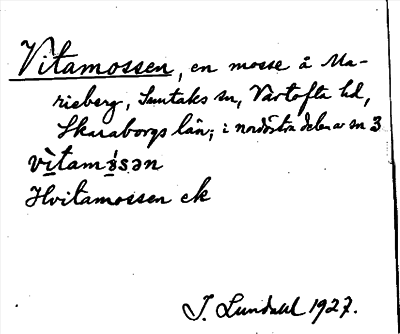 Vitamossen, en mosse å Ma-
rieberg, Suntaks sn, Vartofta hd,
Skaraborgs län; i nordöstra delen av sn 3
Hvitamossen ek
J. Lundahl 1927.